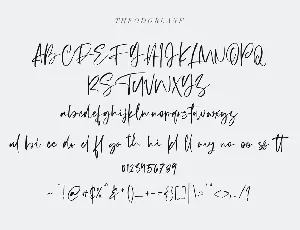 THEODORLANE
ABCDEFGHIJKLMNOPQ
RSTUVWXYZ
abcdefghijklmnopqrstuvwxyz
al bi ee do el fl go th hi kl ll my no oo ss tt
0123456789